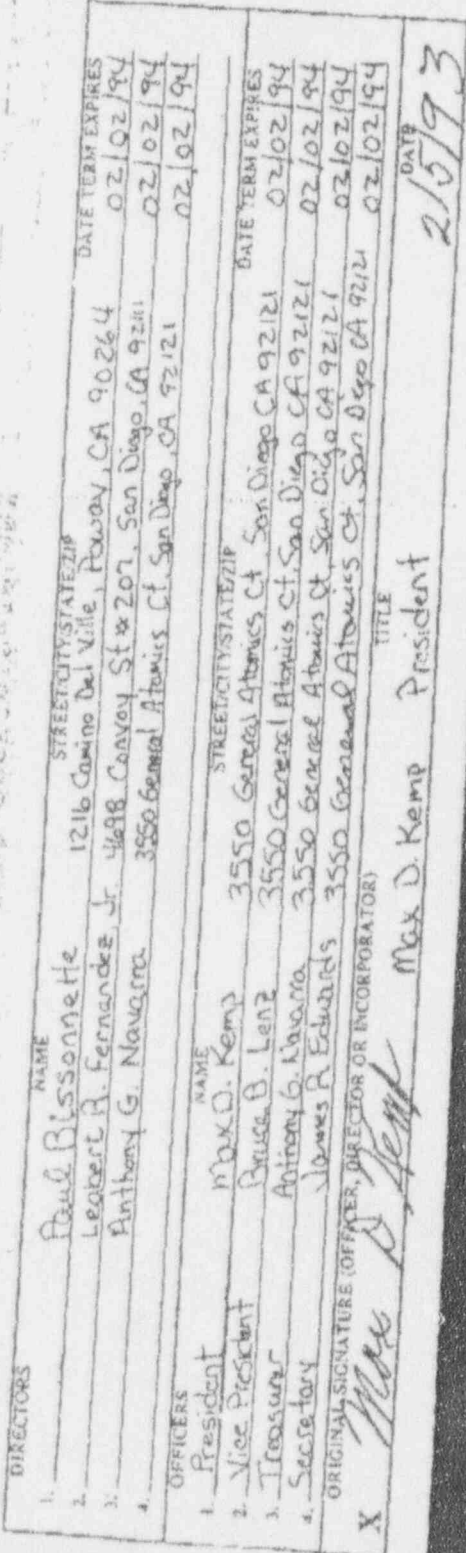 DIRECTORS NAME STREET/CITY/STATE/ZIP DATE TERM EXPIRES
1. Paul Bissonnette 1216 Camino Del Ville, Poway, CA 90264 02/02/94
2. Leobert R. Fernandez, Jr. 4698 Convoy St # 207, San Diego, CA 92111 02/02/94
3. Anthony G. Navarra 3550 General Atomics Ct. San Diego, CA 92121 02/02/94
4.
OFFICERS NAME STREET/CITY/STATE/ZIP DATE TERM EXPIRES
1. President Max D. Kemp 3550 General Atomics Ct San Diego CA 92121 02/02/94
2. Vice President Bruce B. Lenz 3550 General Atomics Ct, San Diego CA 92121 02/02/94
3. Treasurer Anthony G. Navarra 3550 General Atomics Ct, San Diego CA 92121 02/02/94
4. Secretary James R Edwards 3550 General Atomics Ct, San Diego CA 92121 02/02/94
ORIGINAL SIGNATURE (OFFICER, DIRECTOR OR INCORPORATOR) TITLE DATE
X Max D Kemp Max D. Kemp President 2/5/93